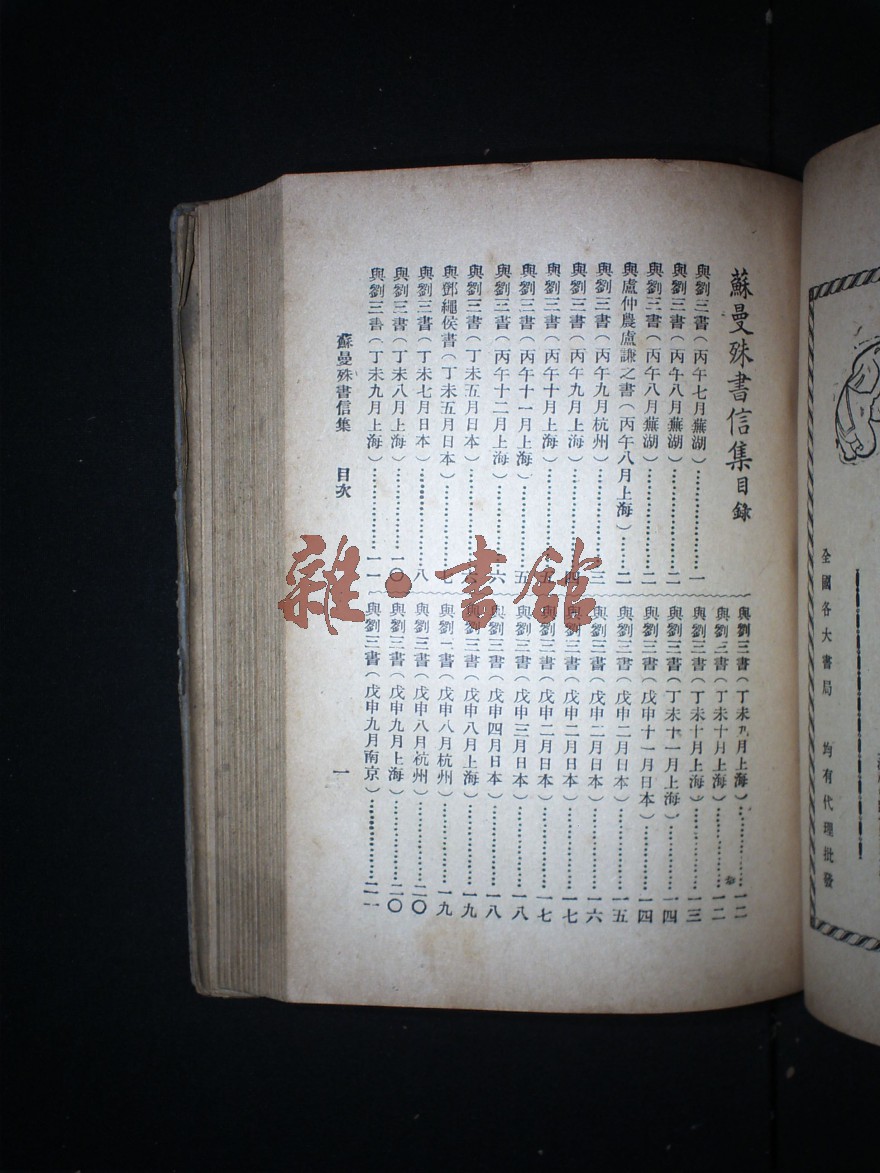 全國各大書局 均有代理批發
蘇曼殊書信集目錄
與劉三書(丙午七月蕪湖)……一
與劉三書(丙午八月蕪湖)……二
與劉三書(丙午八月蕪湖)……二
與盧仲農盧謙之書(丙午八月上海)……二
與劉三書(丙午九月杭州)……三
與劉三書(丙午九月上海)……四
與劉三書(丙午十月上海)……五
與劉三書(丙午十一月上海)……五
與劉三書(丙午十二月上海)……六
與劉三書(丁未五月日本)……
與鄧繩侯書(丁未五月日本)……
與劉三書(丁未七月日本)……八
與劉三書(丁未八月上海)……一〇
與劉三書(丁未九月上海)……一一
與劉三書(丁未九月上海)……一二
與劉三書(丁未十月上海)……一二
與劉三書(丁未十月上海)……一三
與劉三書(丁未十一月上海)……一四
與劉三書(戊申十一月日本)……一四
與劉三書(戊申二月日本)……一五
與劉三書(戊申二月日本)……一六
與劉三書(戊申二月日本)……一七
與劉三書(戊申二月日本)……一七
與劉三書(戊申三月日本)……一八
與劉三書(戊申四月日本)……一八
與劉三書(戊申八月上海)……一九
與劉三書(戊申八月杭州)……一九
與劉三書(戊申八月杭州)……二〇
與劉三書(戊申九月上海)……二〇
與劉三書(戊申九月南京)……二一
蘇曼殊書信集 目次 一
雜·書館